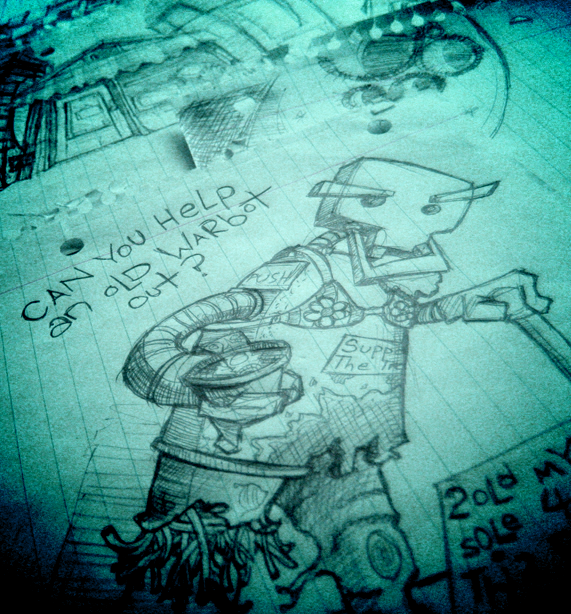 CAN YOU HELP
an OLD WARbot
out?
PUSH
Supp
The Tr
2old MY
sole 4
THi